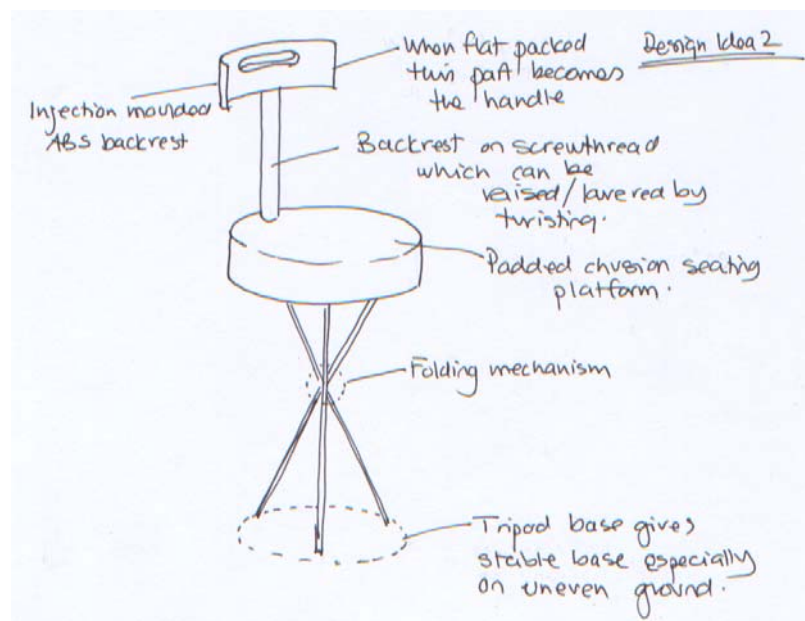 Design Idea 2
When flat packed
this part becomes
the handle
Injection moulded
ABS backrest
Backrest on screwthread
which can be
raised/lowered by
twisting.
Padded chusion seating
platform.
Folding mechanism
Tripod base gives
stable base especially
on uneven ground.